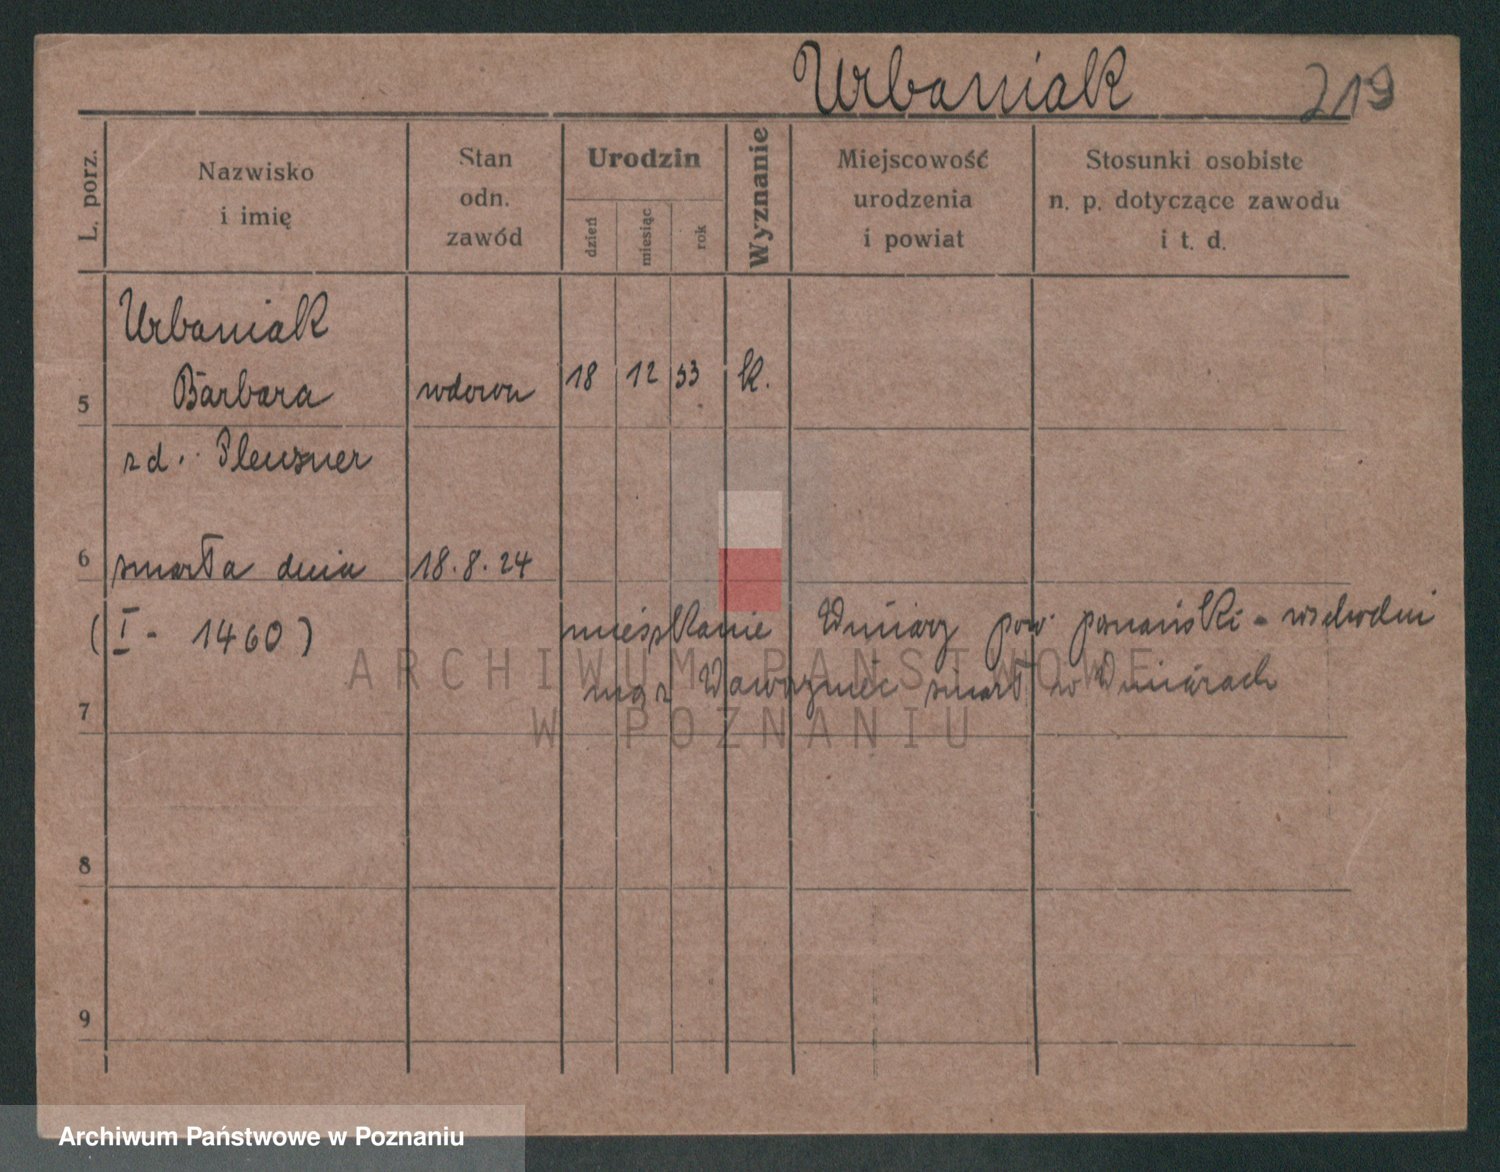 Urbaniak 219
L. porz.
Nazwisko
i imię
Stan
odn.
zawód
Urodzin
dzień
miesiąc
rok
Wyznanie
Miejscowość
urodzenia
i powiat
Stosunki osobiste
n. p. dotyczące zawodu
i t. d.
Urbaniak
5 Barbara wdowa 18 12 53 k.
zd. Pleuzner
6 zmarła dnia 18.8.24
(I - 1460) mieszkanie pow. poznański - wschodni
7 mąż Wawrzyniec zmarł w
8
9
ARCHIWUM PAŃSTWOWE
W POZNANIU
Archiwum Państwowe w Poznaniu